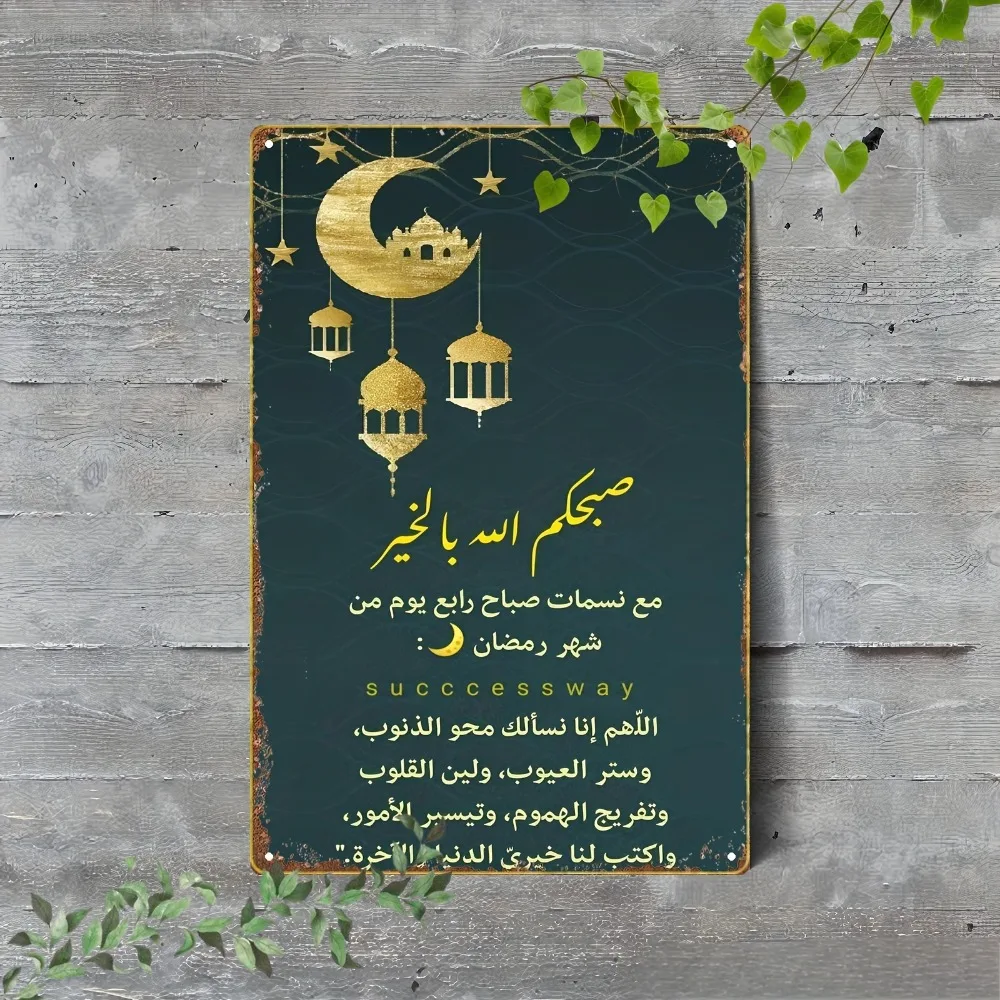 صبحكم الله بالخير
مع نسمات صباح رابع يوم من
شهر رمضان 🌙 :
succcessway
اللّهم إنا نسألك محو الذنوب،
وستر العيوب، ولين القلوب
وتفريج الهموم، وتيسير الأمور،
واكتب لنا خيريّ الدنيا والآخرة."